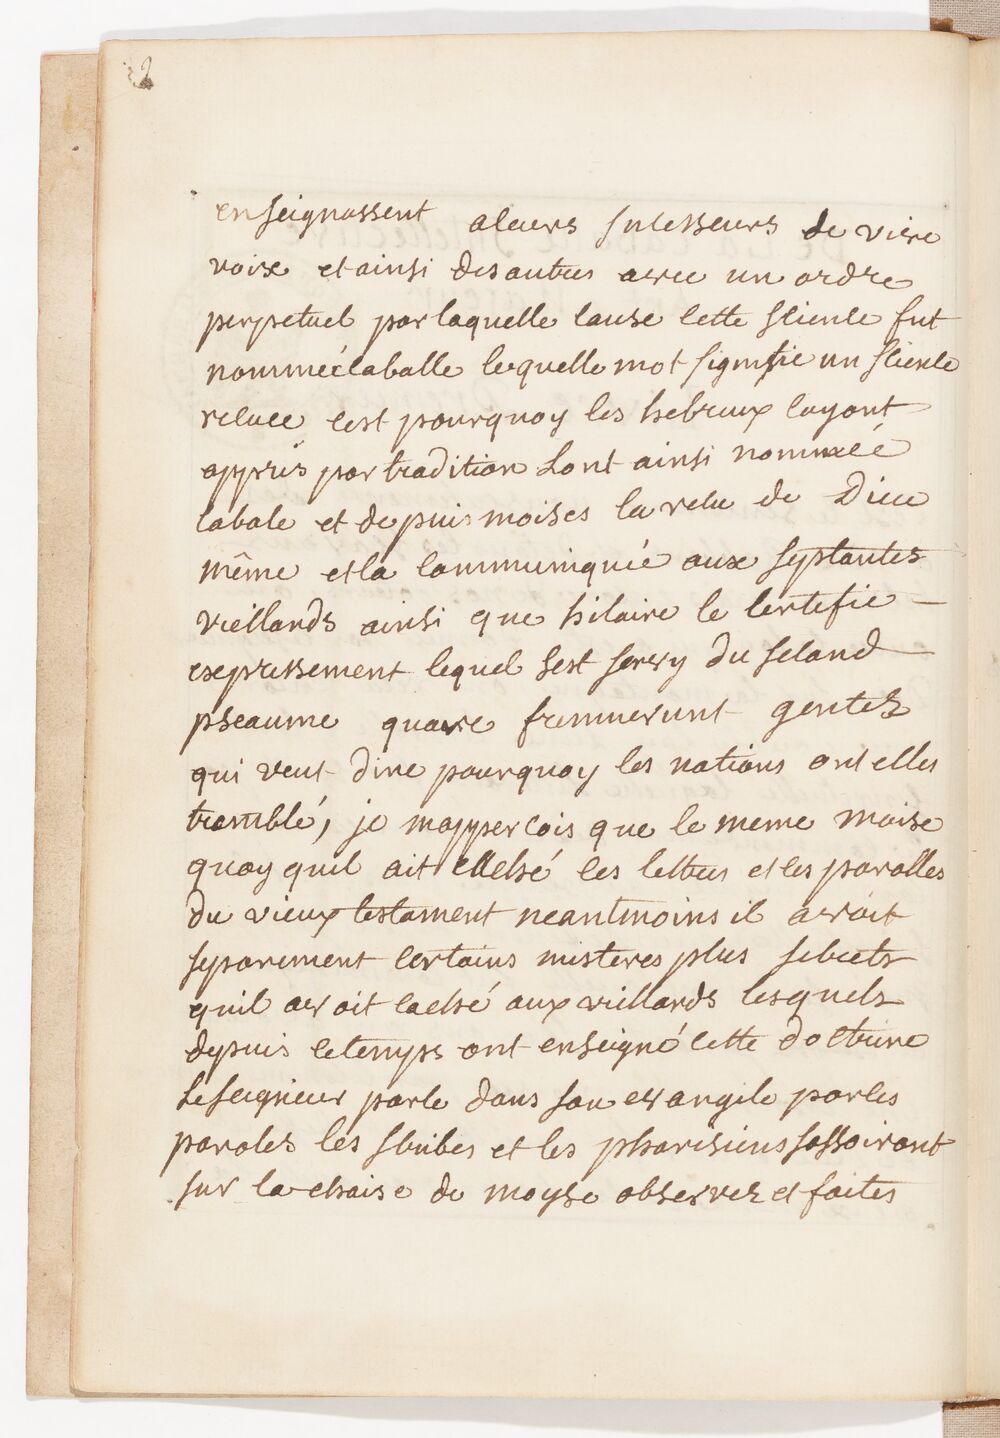 2
enseignassent aleurs sucesseurs de vive
voix et ainsi des autres avec un ordre
perpetuel par laquelle cause cette science fut
nommée caballe lequelle mot signifie un science
relucee cest pourquoy les hebreux layant
appris par tradition Lont ainsi nommeé
cabale et depuis moises la relu de Dieu
même et la communiquée aux septantes
viellards ainsi que hilaire le certefie
expressement lequel sest servy du second
pseaume quare fremuerunt gentes
qui veut dire pourquoy les nations ont elles
tremblé, je mappercois que le meme moise
quoy quil ait les lettres et les parolles
du vieux testament neantmoins il avoit
separement certains misteres plus secrets
quil avoit caché aux viellards lesquels
depuis ce temps ont enseigné cette doctrine
Le seigneur parle dans son evangile par les
paroles les scribes et les pharisiens sassoiront
sur la chaise de moyse observez et faites